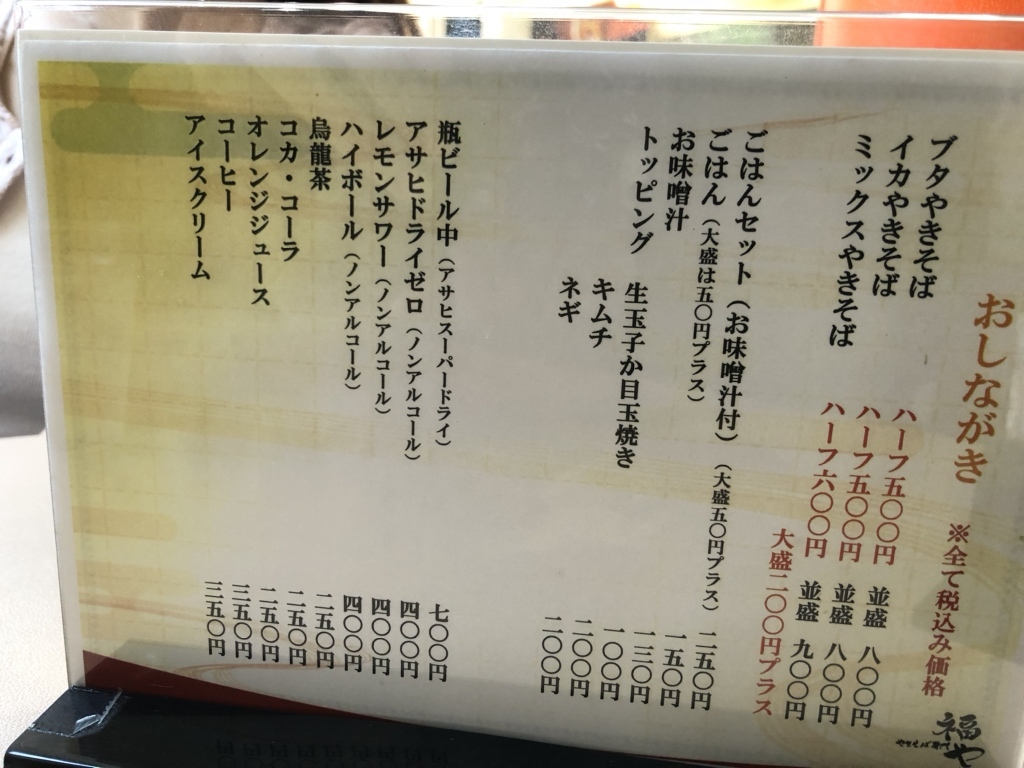 おしながき ※全て税込み価格
ブタやきそば ハーフ五〇〇円 並盛 八〇〇円
イカやきそば ハーフ五〇〇円 並盛 八〇〇円
ミックスやきそば ハーフ六〇〇円 並盛 九〇〇円
大盛二〇〇円プラス
ごはんセット（お味噌汁付）（大盛五〇円プラス） 二五〇円
ごはん（大盛は五〇円プラス） 一五〇円
お味噌汁 一三〇円
トッピング 生玉子か目玉焼き 一〇〇円
キムチ 二〇〇円
ネギ 二〇〇円
瓶ビール中（アサヒスーパードライ） 七〇〇円
アサヒドライゼロ（ノンアルコール） 四〇〇円
レモンサワー（ノンアルコール） 四〇〇円
ハイボール（ノンアルコール） 四〇〇円
烏龍茶 二五〇円
コカ・コーラ 二五〇円
オレンジジュース 二五〇円
コーヒー 三五〇円
アイスクリーム 三五〇円
やきそば専門
福や